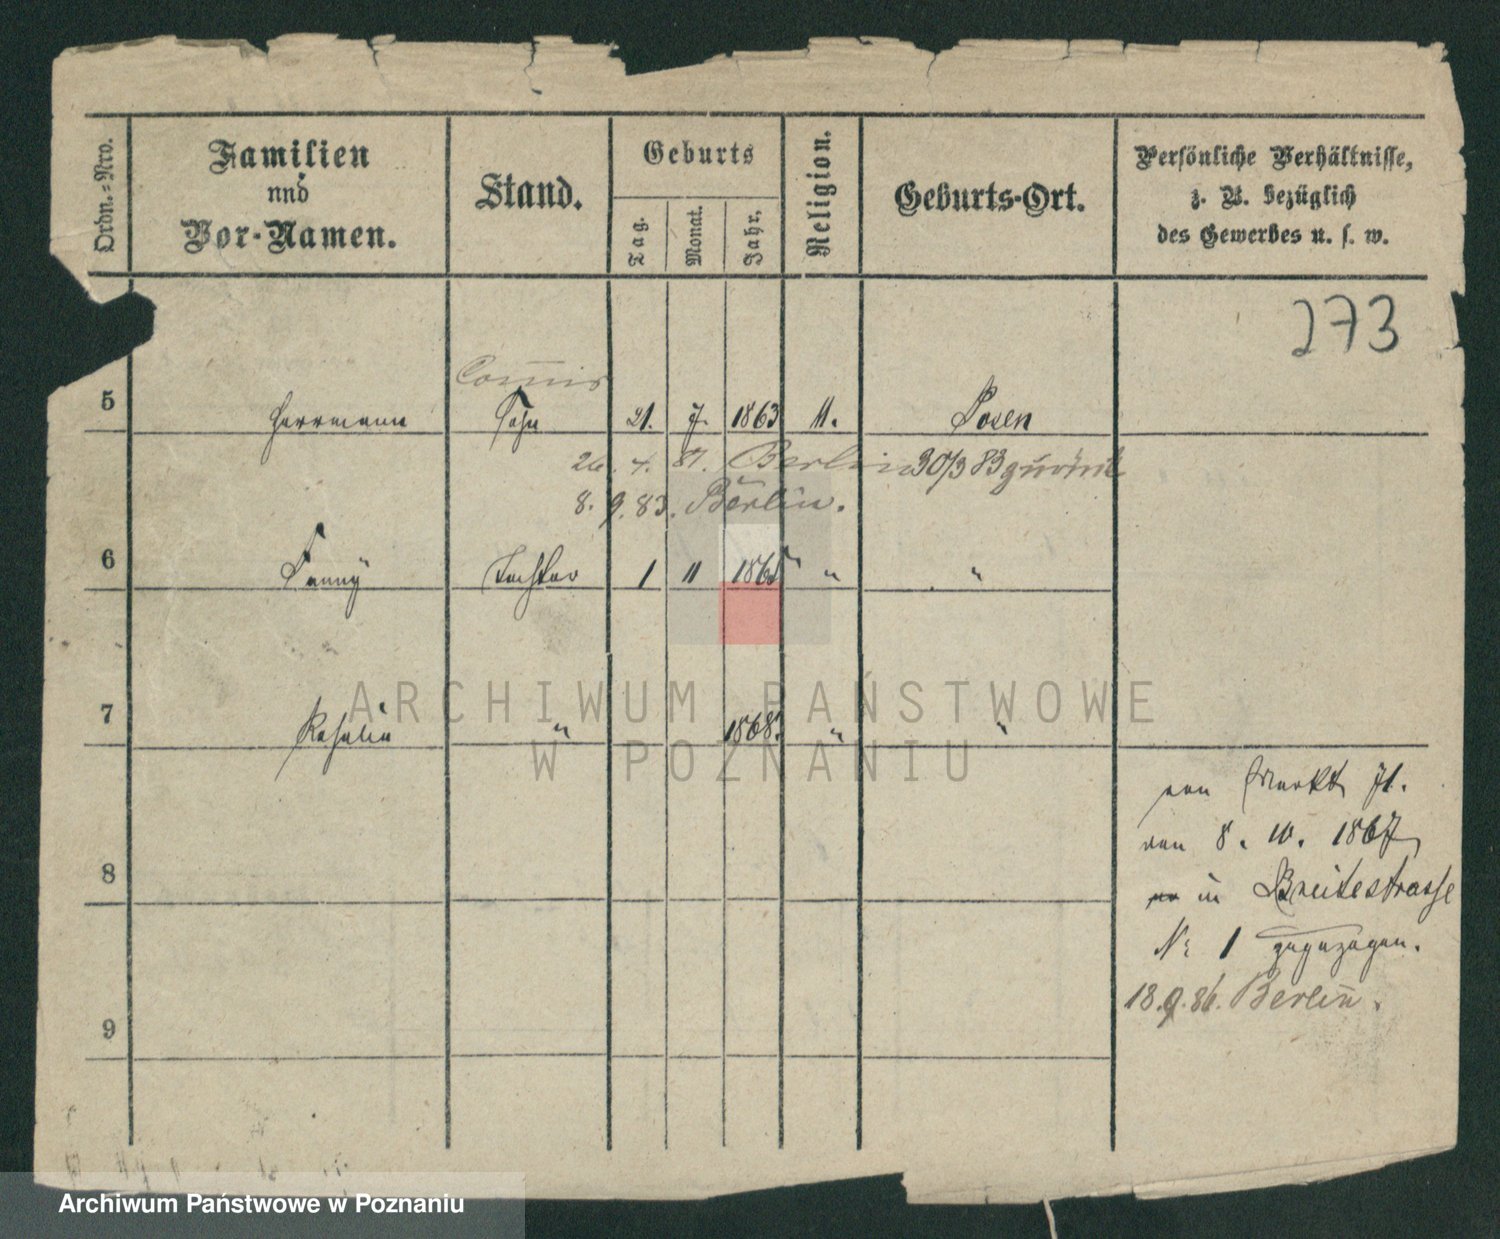 Ordn.-Nro.
Familien
und
Vor-Namen.
Stand.
Geburts
Tag.
Monat.
Jahr.
Religion.
Geburts-Ort.
Persönliche Verhältnisse,
z. B. bezüglich
des Gewerbes u. s. w.
273
Commis
5 Herrmann Sohn 21. 7. 1863 M. Posen
26. 4. 81. Berlin 30/3 83 zurück
8. 9. 83. Berlin.
6 Fanny Tochter 1 11 1865 " "
7 Rosalie " 1868. " "
von Markt 71.
am 8. 10. 1867
in Breitestrasse
No 1 zugezogen.
18. 9. 86. Berlin.
8
9
ARCHIWUM PAŃSTWOWE
W POZNANIU
Archiwum Państwowe w Poznaniu